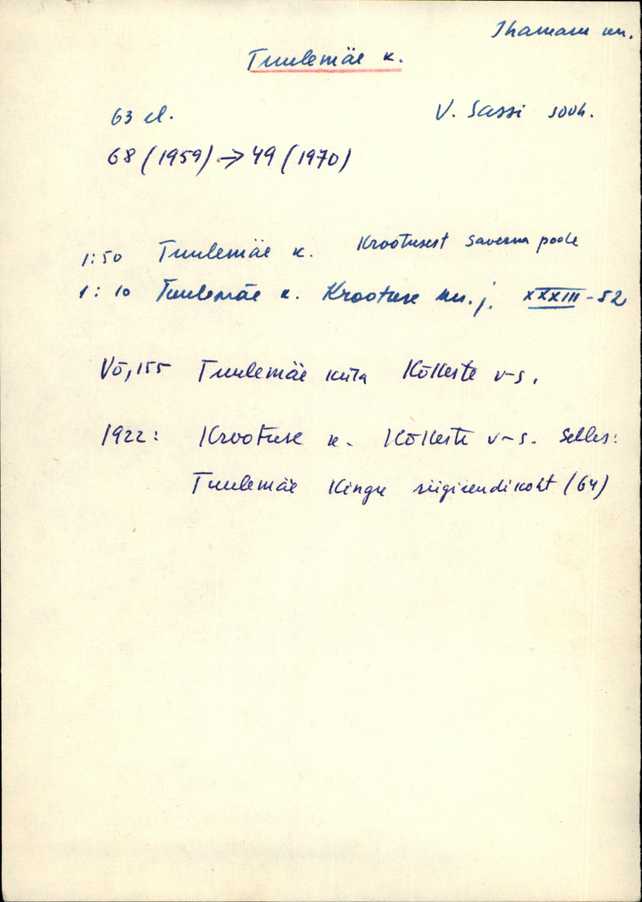 Ihamaru kn.
Tuulemäe k.
63 el. V. Sassi sovh.
68 (1959) → 49 (1970)
1:50 Tuulemäe k. Krootusest Saverna poole
1:10 Tuulemäe k. Krootuse kn. j. XXXIII-52
Võ, 155 Tuulemäe küla Kõlleste v-s.
1922: Krootuse k. Kõlleste v-s. Selles:
Tuulemäe Kingu riigirendikoht (64)